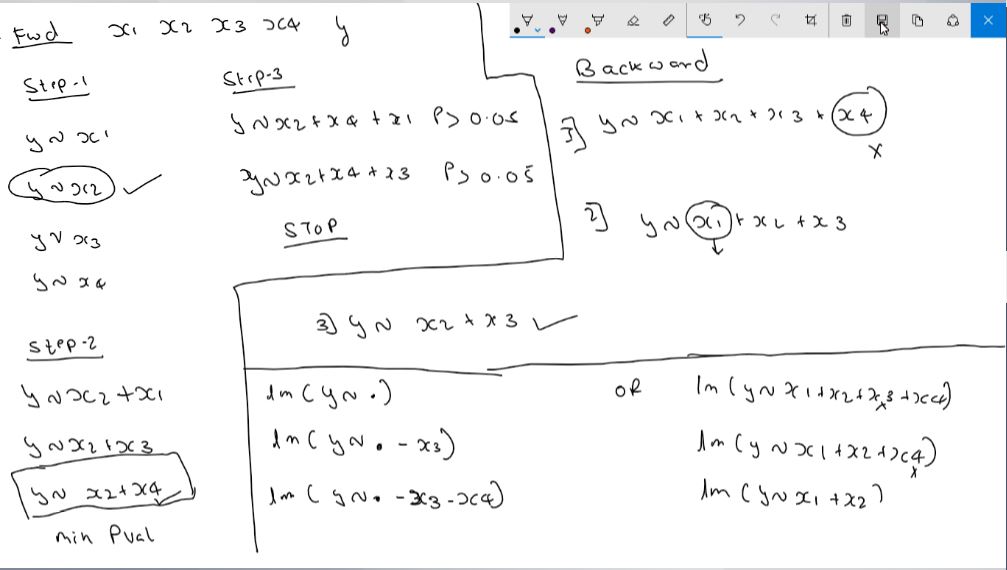 Fwd x1 x2 x3 x4 y
Step-1
y ~ x1
y ~ x2
y ~ x3
y ~ x4
Step-2
y ~ x2 + x1
y ~ x2 + x3
y ~ x2 + x4
min Pval
Step-3
y ~ x2 + x4 + x1 P > 0.05
y ~ x2 + x4 + x3 P > 0.05
STOP
Backward
1] y ~ x1 + x2 + x3 + x4
x
2] y ~ x1 + x2 + x3
3] y ~ x2 + x3
lm ( y ~ . ) OR lm ( y ~ x1 + x2 + x3 + x4)
lm ( y ~ . - x3) lm ( y ~ x1 + x2 + x4)
lm ( y ~ . - x3 - x4) lm ( y ~ x1 + x2 )